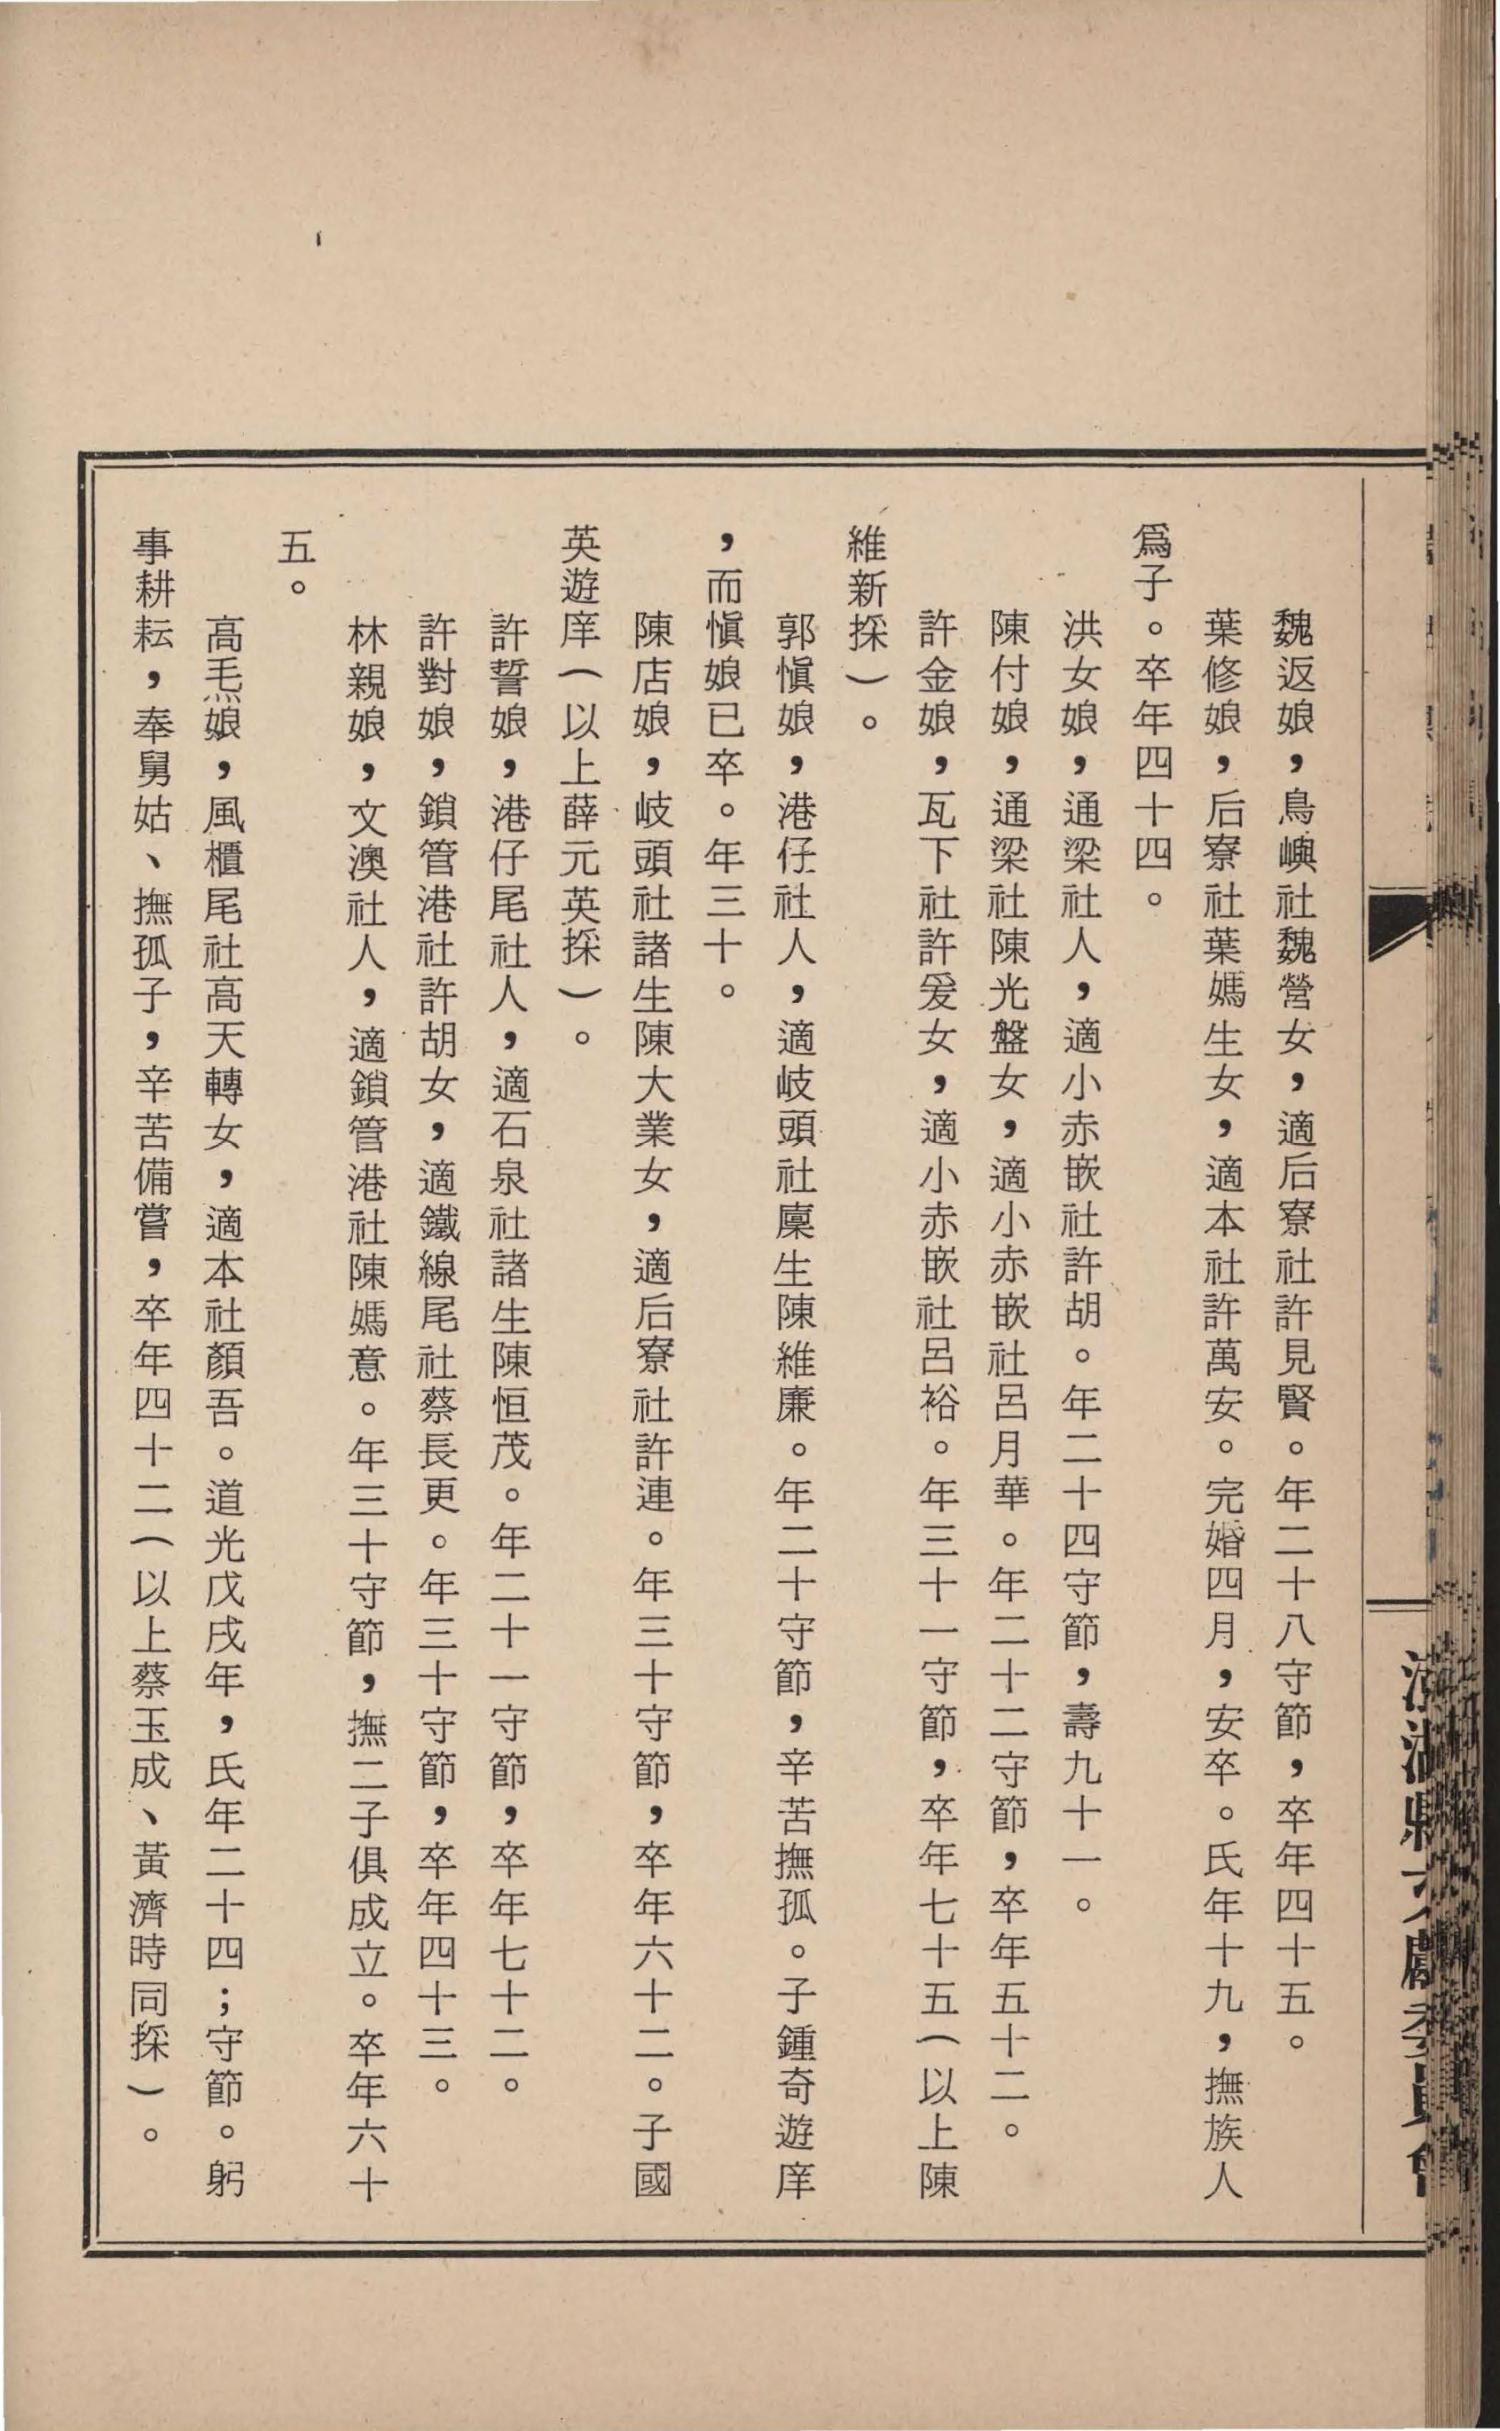 魏返娘，鳥嶼社魏營女，適后寮社許見賢。年二十八守節，卒年四十五。
葉修娘，后寮社葉媽生女，適本社許萬安。完婚四月，安卒。氏年十九，撫族人
爲子。卒年四十四。
洪女娘，通梁社人，適小赤嵌社許胡。年二十四守節，壽九十一。
陳付娘，通梁社陳光盤女，適小赤嵌社呂月華。年二十二守節，卒年五十二。
許金娘，瓦下社許爰女，適小赤嵌社呂裕。年三十一守節，卒年七十五（以上陳
維新採）。
郭愼娘，港仔社人，適岐頭社廩生陳維廉。年二十守節，辛苦撫孤。子鍾奇遊庠
，而愼娘已卒。年三十。
陳店娘，岐頭社諸生陳大業女，適后寮社許連。年三十守節，卒年六十二。子國
英遊庠（以上薛元英採）。
許誓娘，港仔尾社人，適石泉社諸生陳恒茂。年二十一守節，卒年七十二。
許對娘，鎖管港社許胡女，適鐵線尾社蔡長更。年三十守節，卒年四十三。
林親娘，文澳社人，適鎖管港社陳媽意。年三十守節，撫二子俱成立。卒年六十
五。
高𤆬娘，風櫃尾社高天轉女，適本社顏吾。道光戊戌年，氏年二十四；守節。躬
事耕耘，奉舅姑、撫孤子，辛苦備嘗，卒年四十二（以上蔡玉成、黃濟時同採）。